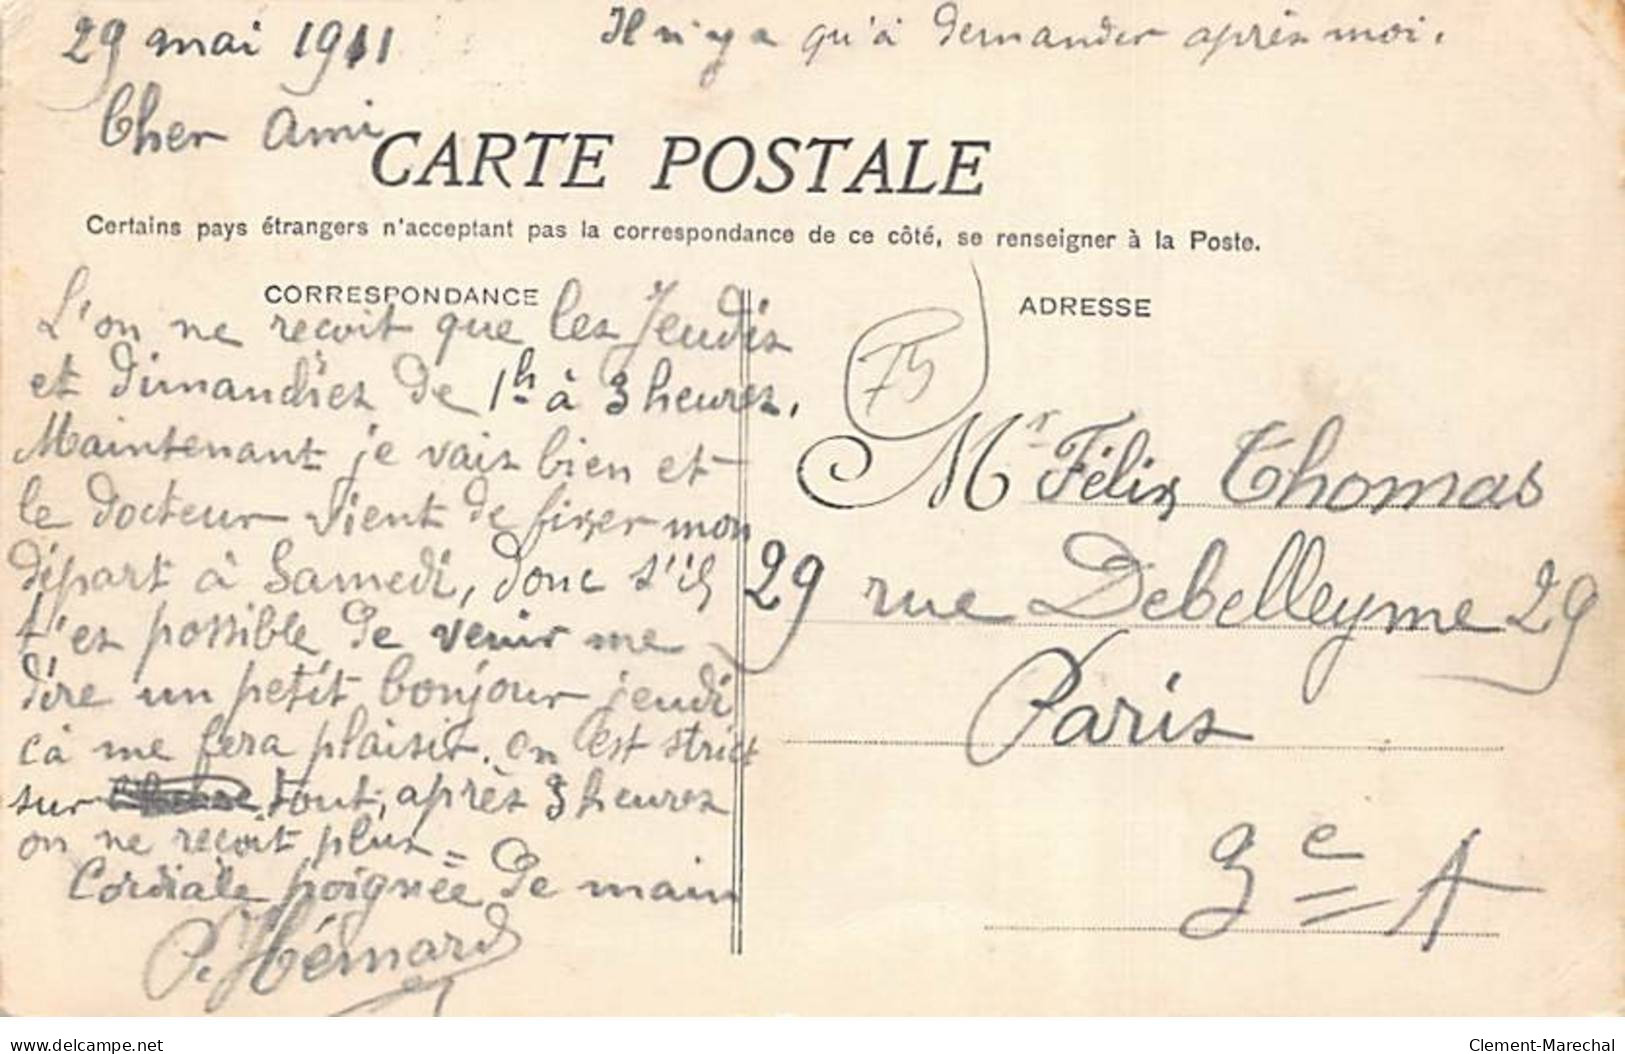 29 mai 1911
Il n'y a qu'à demander après moi.
Cher Ami
CARTE POSTALE
Certains pays étrangers n'acceptant pas la correspondance de ce côté, se renseigner à la Poste.
CORRESPONDANCE
L'on ne reçoit que les Jeudis
et dimanches de 1h à 3 heures.
Maintenant je vais bien et
le docteur vient de fixer mon
départ à Samedi, donc s'il
t'es possible de venir me
dire un petit bonjour jeudi
cà me fera plaisir. on est strict
sur tout, après 3 heures
on ne reçoit plus =
Cordiale poignée de main
P. Hémard
ADRESSE
75
Mr Félix Thomas
29 rue Debelleyme 29
Paris
3e A
www.delcampe.net
Clement-Marechal